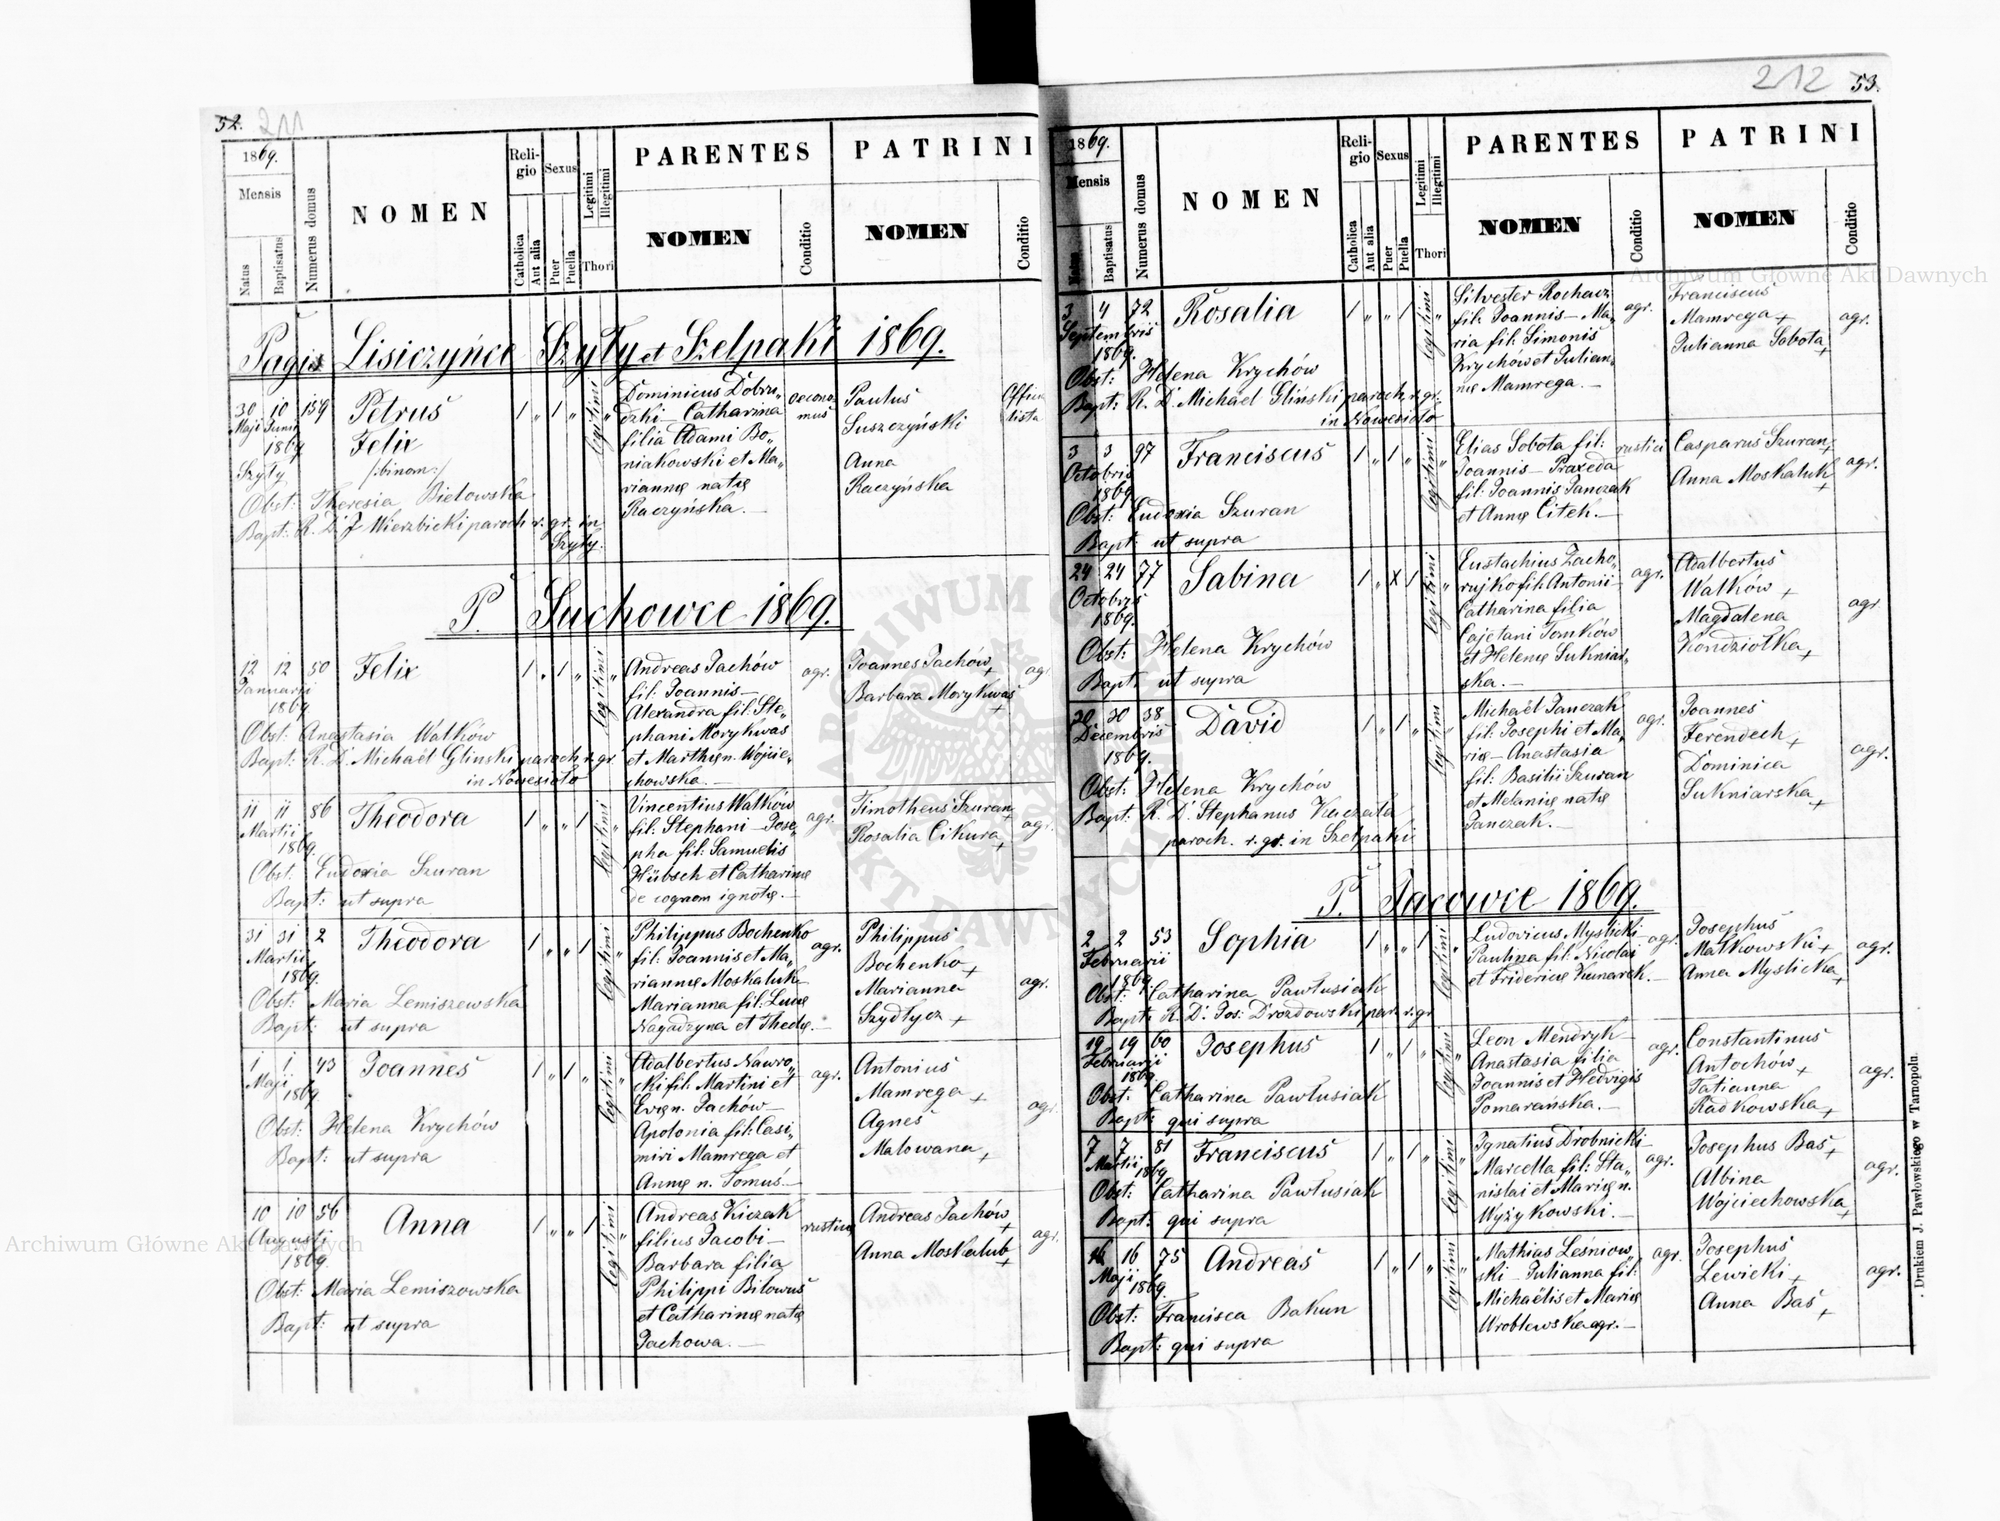 52. 211
1869.
Mensis
Natus
Baptisatus
Numerus domus
NOMEN
Religio
Catholica
Aut alia
Sexus
Puer
Puella
Legitimi
Illegitimi
Thori
PARENTES
NOMEN
Conditio
PATRINI
NOMEN
Conditio
Pagis Lisiczyńce Szyły et Szelpaki 1869.
30 10 159 Petrus 1 „ 1 „ legitimi „ Dominicus Dobru„ oecono Paulus Offici
Maji Junii Felix dzki – Catharina mus Suszczyński lista
1869 /:binom:/ filia Adami Bo„ Anna
Szyły niakowski et Ma„ Raczyńska
Obst: Theresia Bielowska riannę natę
Bapt: R. D. J Wierzbicki paroch r. gr. in Raczyńska. –
Szyły.
P. Suchowce 1869.
12 12 50 Felix 1 „ 1 „ legitimi „ Andreas Jachów agr. Joannes Jachów + agr
Januarii fil: Joannis – Barbara Morykwas +
1869 Alexandra fil: Ste„
Obst: Anastasia Watków phani Morykwas
Bapt: R. D. Michaël Glinski paroch r. gr. et Marthę n. Wojcie„
in Nowesioło chowska. –
11 11 86 Theodora 1 „ „ 1 legitimi „ Vincentius Watków agr. Timotheus Szuran + agr.
Martii fil: Stephani – Jose„ Rosalia Cikura +
1869 pha fil: Samuelis
Obst. Eudoxia Szuran Hübsch et Catharinę
Bapt: ut supra de cognom ignotę. –
31 31 2 Theodora 1 „ „ 1 legitimi „ Philippus Bochenko agr. Philippus
Martii fil: Joannis et Ma„ Bochenko +
1869 riannę Moskaluk – Marianna agr.
Obst: Maria Lemiszewska Marianna fil: Lucę Szydłycz +
Bapt: ut supra Nagadzyna et Theclę. –
1 1 43 Joannes 1 „ 1 „ legitimi „ Adalbertus Nawro„ agr. Antonius
Maji cki fil: Martini et Mamrega +
1869 Evę n. Jachów – Agnes agr
Obst: Helena Krychów Apolonia fil: Casi„ Malowana +
Bapt: ut supra miri Mamrega et
Annę n. Tomus –
10 10 56 Anna 1 „ „ 1 legitimi „ Andreas Kiczak rusticus Andreas Jachów + agr.
Augusti filius Jacobi – Anna Moskalub +
1869. Barbara filia
Obst: Maria Lemiszowska Philippi Bilowus
Bapt: ut supra et Catharinę natę
Jachowa. –
212 53.
1869.
Mensis
Natus
Baptisatus
Numerus domus
NOMEN
Religio
Catholica
Aut alia
Sexus
Puer
Puella
Legitimi
Illegitimi
Thori
PARENTES
NOMEN
Conditio
PATRINI
NOMEN
Conditio
3 4 72 Rosalia 1 „ „ 1 legitimi „ Silvester Rochacz agr. Franciscus
Septembris fil: Joannis – Ma„ Mamrega + agr.
1869. ria fil: Simonis Julianna Sobota +
Obst: Helena Krychów Krychów et Julian„
Bapt: R. D. Michaël Gliński paroch. r. gr. nę Mamrega. –
in Nowesioło
3 3 97 Franciscus 1 „ 1 „ legitimi „ Elias Sobota fil: rustici Casparus Szuran +
Octobris Joannis – Praxeda Anna Moskaluk + agr.
1869 fil: Joannis Janczak
Obst: Eudoxia Szuran et Annę Citch. –
Bapt: ut supra
24 24 77 Sabina 1 „ X 1 legitimi „ Eustachius Zacho„ agr. Adalbertus
Octobris rujko fil: Antonii – Watków +
1869. Catharina filia Magdalena agr.
Obst: Helena Krychów Cajetani Tomków Kondziołka +
Bapt: ut supra et Helenę Sukniar„
ska. –
30 30 38 David 1 „ 1 „ legitimi „ Michaël Janczak agr. Joannes
Decembris fil: Josephi et Ma„ Ferendech +
1869. rię – Anastasia Dominica agr.
Obst: Helena Krychów fil: Basilii Szuran Sukniarska +
Bapt: R. D. Stephanus Kaczala et Melanię natę
paroch. r. gr. in Szelpaki Janczak. –
P. Jacowce 1869.
2 2 53 Sophia 1 „ „ 1 legitimi „ Ludovicus Myslicki agr. Josephus
Februarii Paulina fil: Nicolai Malkowski + agr.
1869 et Fridericę Kunarek. – Anna Myslicka +
Obst: Catharina Pawlusiak
Bapt: R. D. Jos: Drozdowski par. r. gr
19 19 60 Josephus 1 „ 1 „ legitimi „ Leon Mendryk – agr. Constantinus
Februarii Anastasia filia Antochów + agr.
1869. Joannis et Hedvigis Tatianna
Obst: Catharina Pawlusiak Pomarańska. – Radkowska +
Bapt: qui supra
7 7 81 Franciscus 1 „ 1 „ legitimi „ Ignatius Drobnicki – agr. Josephus Bas +
Martii 1869 Marcella fil: Sta„ Albina agr.
Obst: Catharina Pawlusiak nislai et Marię n. Wojciechowska +
Bapt: qui supra Wyżykowski. –
16 16 75 Andreas 1 „ 1 „ legitimi „ Mathias Leśniow„ agr. Josephus
Maji ski – Julianna fil: Lewicki + agr.
1869. Michaëlis et Marię Anna Bas +
Obst: Francisca Bakun Wroblewska agr. –
Bapt: qui supra
Drukiem J. Pawłowskiego w Tarnopolu.
Archiwum Główne Akt Dawnych
Archiwum Główne Akt Dawnych
ARCHIWUM GŁÓWNE AKT DAWNYCH